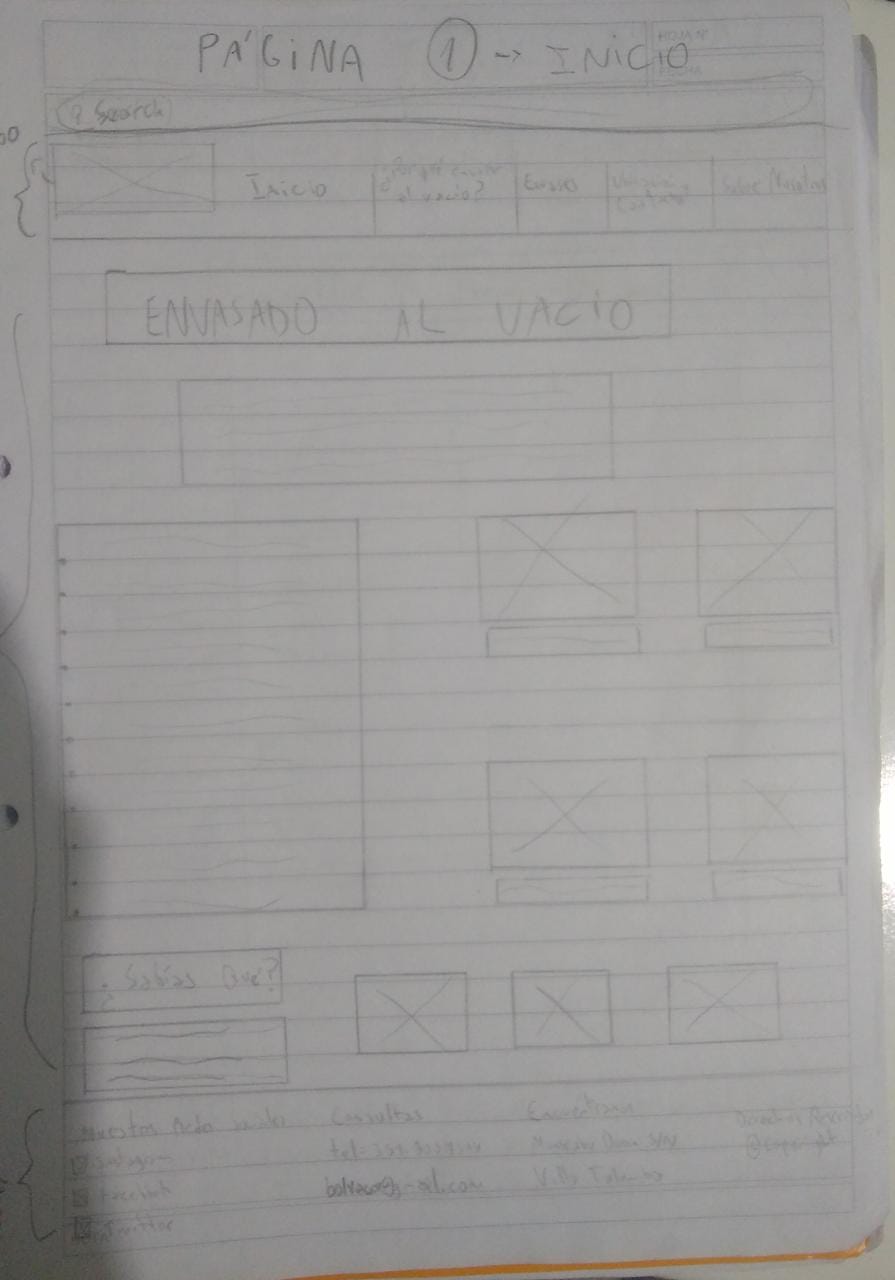 HOJA Nº
FECHA
PÁGINA 1 -> INICIO
Search
Inicio
¿Por qué envasar
al vacío?
Envases
Contacto
Sobre Nosotros
ENVASADO AL VACIO
¿Sabías Qué?
Nuestras Redes sociales
Instagram
Facebook
Twitter
Consultas
tel:
Encuéntranos
Villa
Derechos Reservados
@Copyright